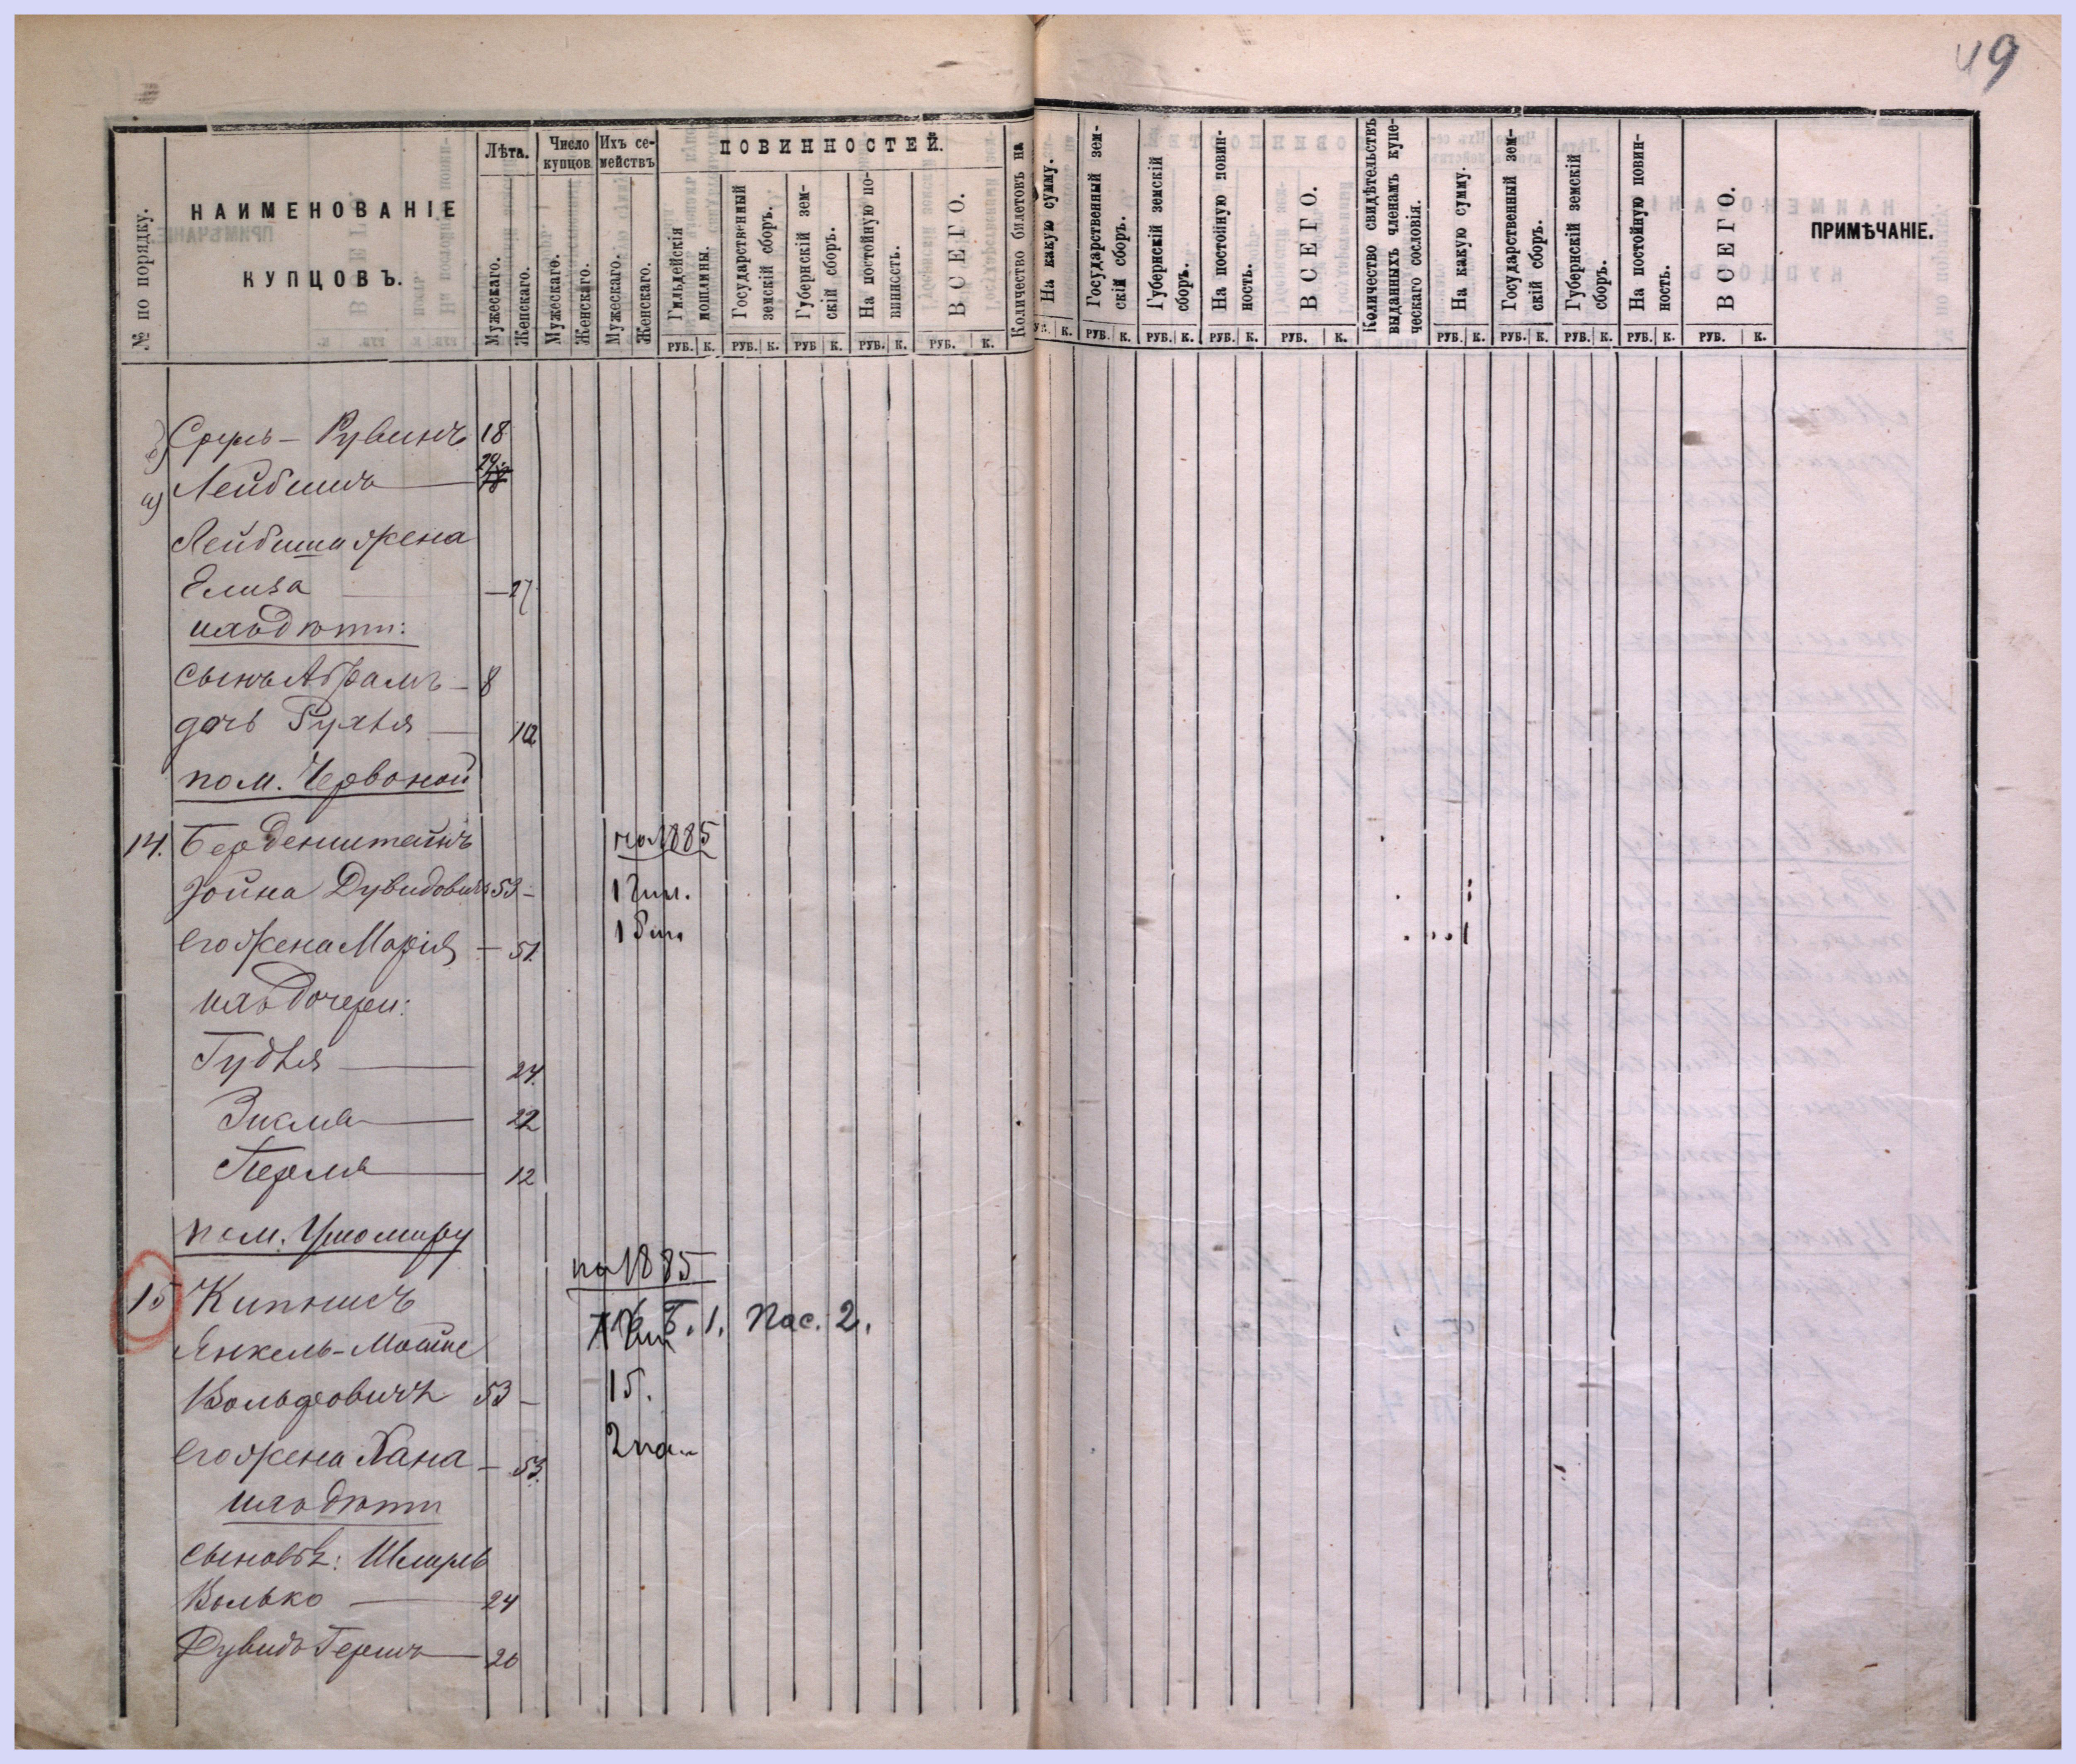 49
№ по порядку.
НАИМЕНОВАНІЕ
КУПЦОВЪ.
Лѣта.
Мужескаго.
Женскаго.
Число купцовъ
Мужескаго.
Женскаго.
Ихъ се-
мействъ
Мужескаго.
Женскаго.
ПОВИННОСТЕЙ.
Гильдейскія
пошлины.
РУБ. К.
Государственный
земскій сборъ.
РУБ. К.
Губернскій зем-
скій сборъ.
РУБ К.
На постойную по-
винность.
РУБ. К.
ВСЕГО.
РУБ. К.
Количество билетовъ на
На какую сумму.
К.
Государственный зем-
скій сборъ.
РУБ. К.
Губернскій земскій
сборъ.
РУБ. К.
На постойную повин-
ность.
РУБ. К.
ВСЕГО.
РУБ. К.
Количество свидѣтельствъ
выданныхъ членамъ купе-
ческаго сословія.
На какую сумму.
РУБ. К.
Государственный зем-
скій сборъ.
РУБ. К.
Губернскій земскій
сборъ.
РУБ. К.
На постойную повин-
ность.
РУБ. К.
ВСЕГО.
РУБ. К.
ПРИМѢЧАНІЕ.
Сруль – Рувинъ 18
Лейбишъ 29
Лейбиша жена
Елиза — 27
ихъ дѣти:
сынъ Абрамъ – 8
дочь Рухля — 10
по м. Червоной
14. Берденштейнъ на 1885
Іойна Дувидовичъ 53 – 1 гил.
его жена Марія – 51. 1 бил
ихъ дочери:
Гудля — 24.
Зисля — 22
Перля — 12
по м. Ушомиру
15 Кипнисъ на 1885
Янкель-Мошке Б. 1. Пас. 2.
Вольфовичъ 53 – 1 б.
его жена Хана – 53. 2 па..
ихъ дѣти
сыновья: Шмуль
Волько — 24
Дувидъ Гершъ — 20